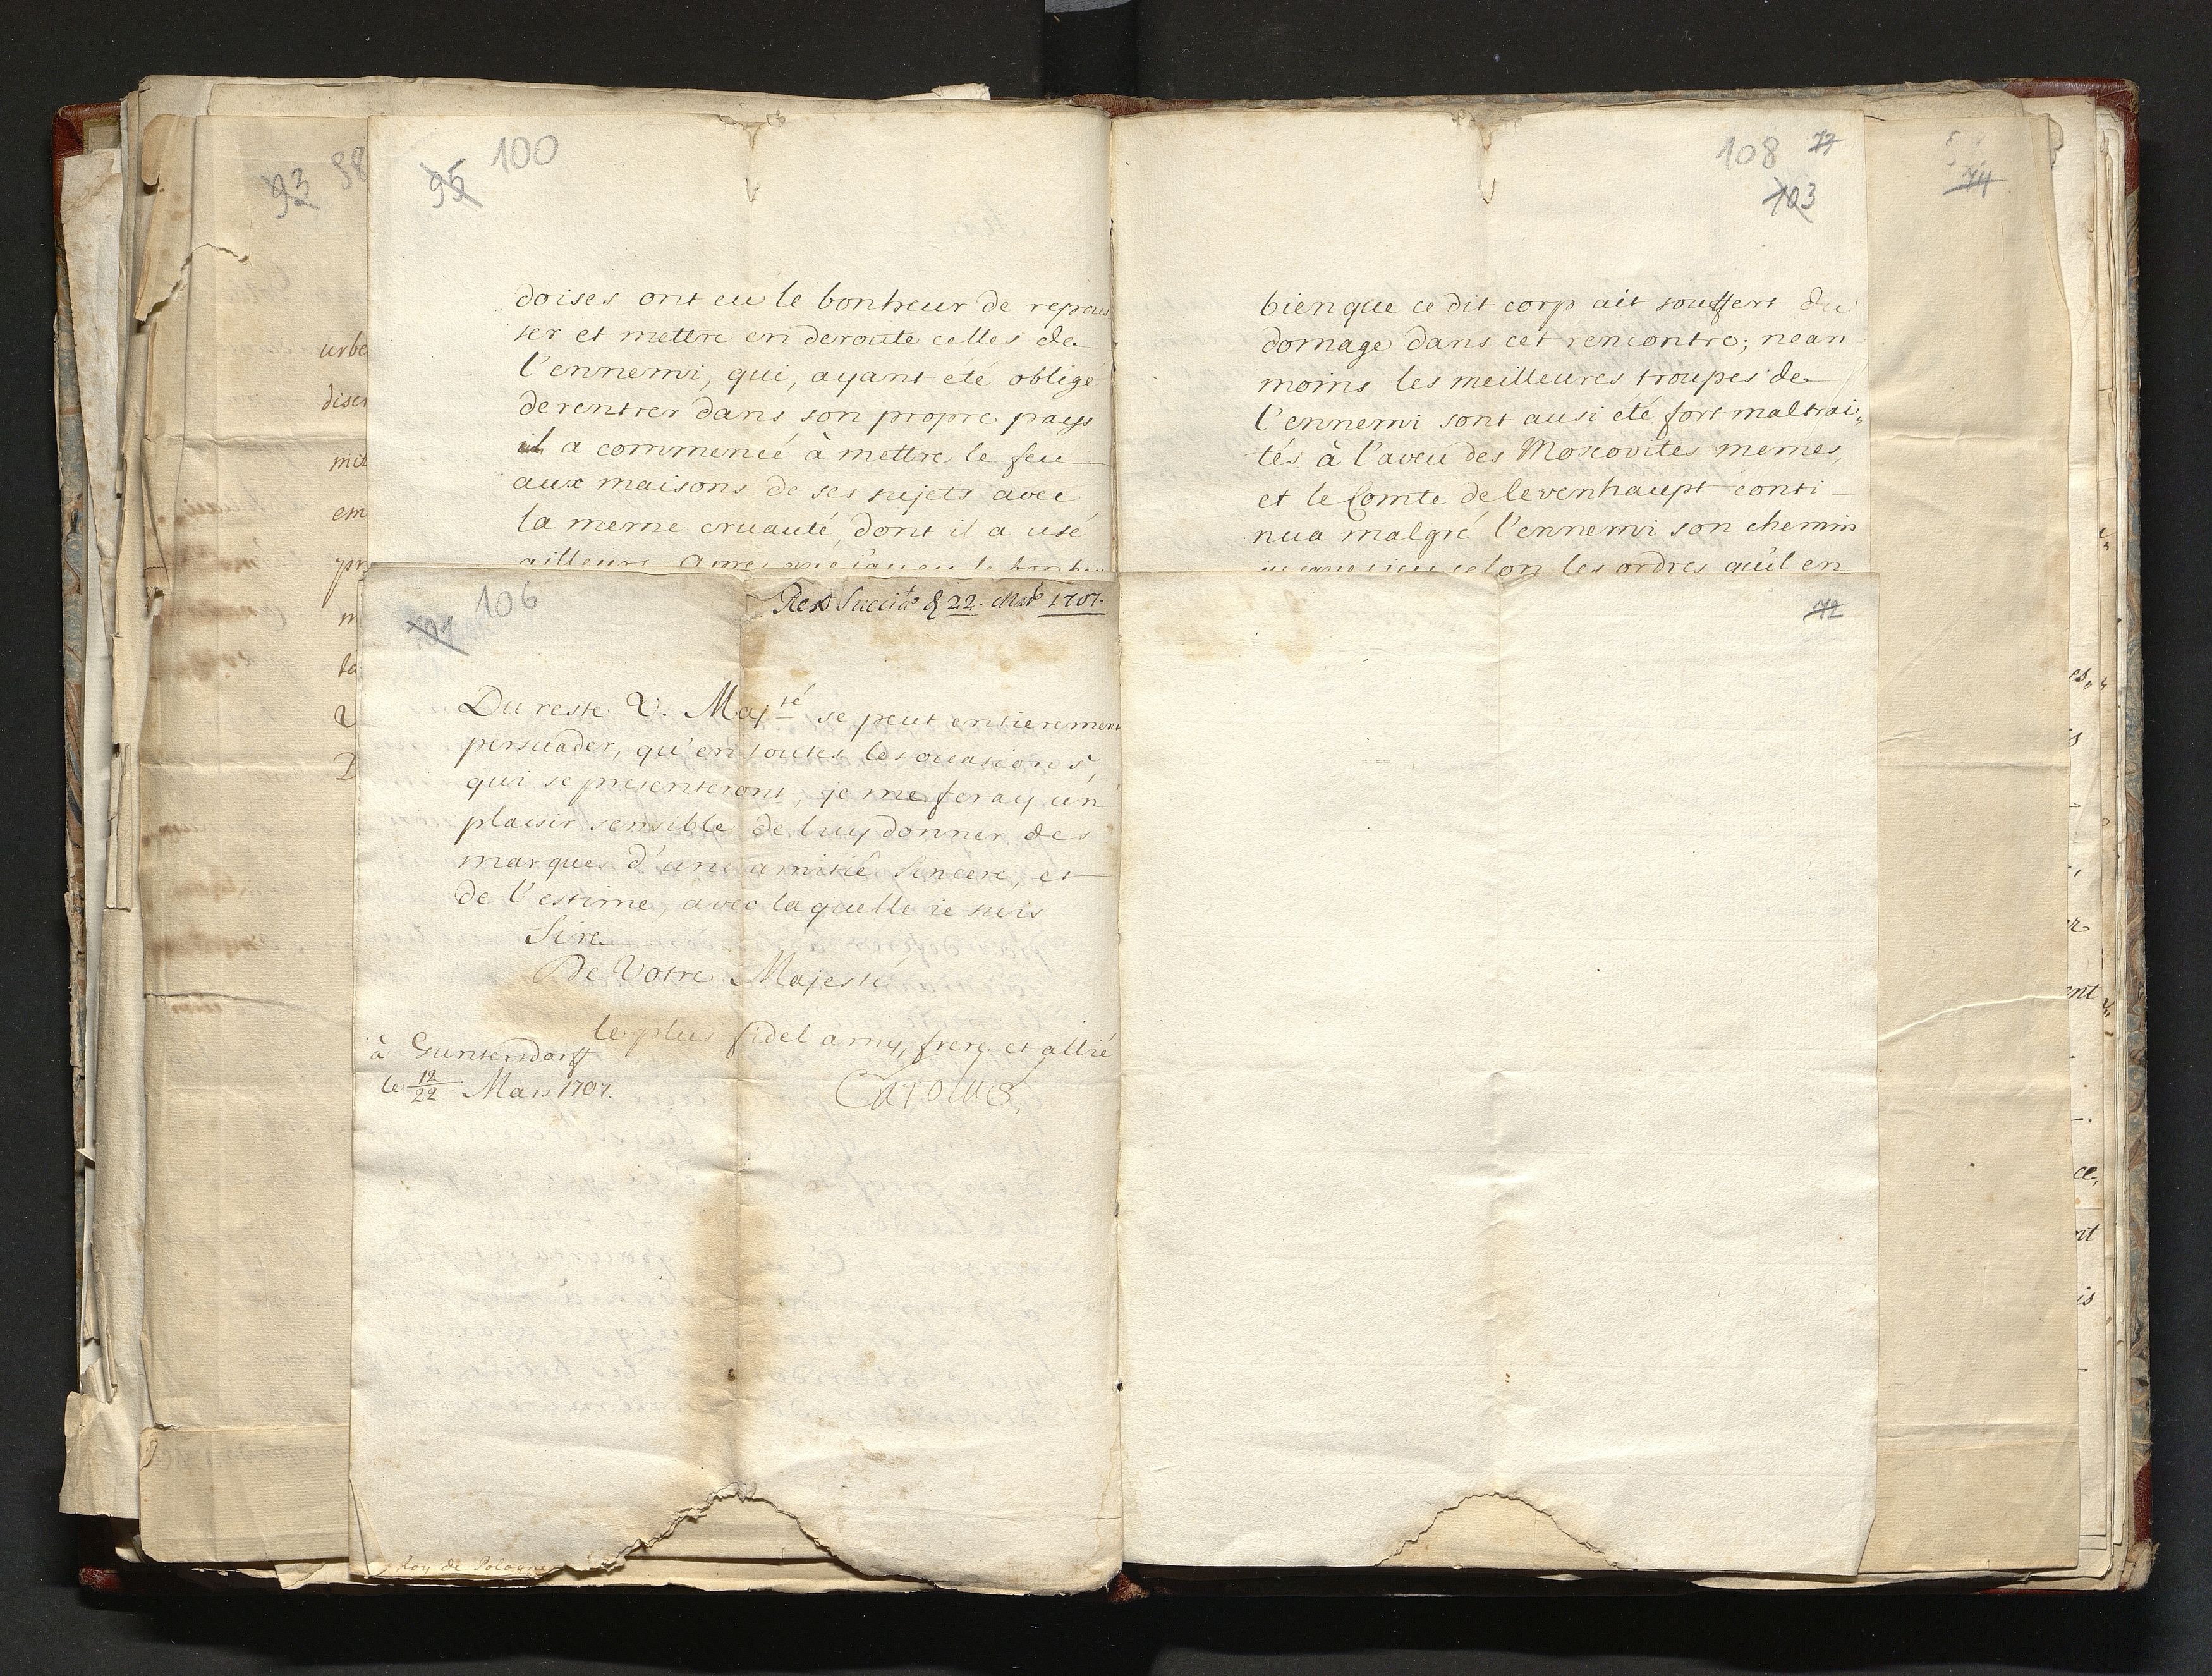 93 98
95 100
doises ont eu le bonheur de repous
ser et mettre en deroute celles de
l'ennemi, qui, ayant été obligé
de rentrer dans son propre pays
il a commencé à mettre le feu
aux maisons de ses sujets avec
la meme cruauté, dont il a usé
ailleurs. Apres que j'ay eu le bonheu
108 77
103
bien que ce dit corp ait souffert du
domage dans cet rencontre; nean
moins les meilleures troupes de
l'ennemi sont ausi été fort maltrai„
tés à l'aveu des Moscovites memes,
et le Comte de Levenhaupt conti-
nua malgré l'ennemi son chemin
selon les ordres qu'il en
74
urbe
disen
mit
em
pr
m
ta
V
D
101 106
Rex Sueciæ 22. Mar 1707.
Du reste V. Maj.té se peut entierement
persuader, qu'en toutes les occasions,
qui se presenteront, je me feray un
plaisir sensible de luy donner des
marques d'une amitié sincere, et
de l'estime, avec laquelle ie suis
Sire
De Votre Majesté
le plus fidel amy, frere et allié
à Guntersdorff
le 12/22 Mars 1707.
Carolus.
Roy de Pologne
72
es,
is
er
ent
ce,
ont
is